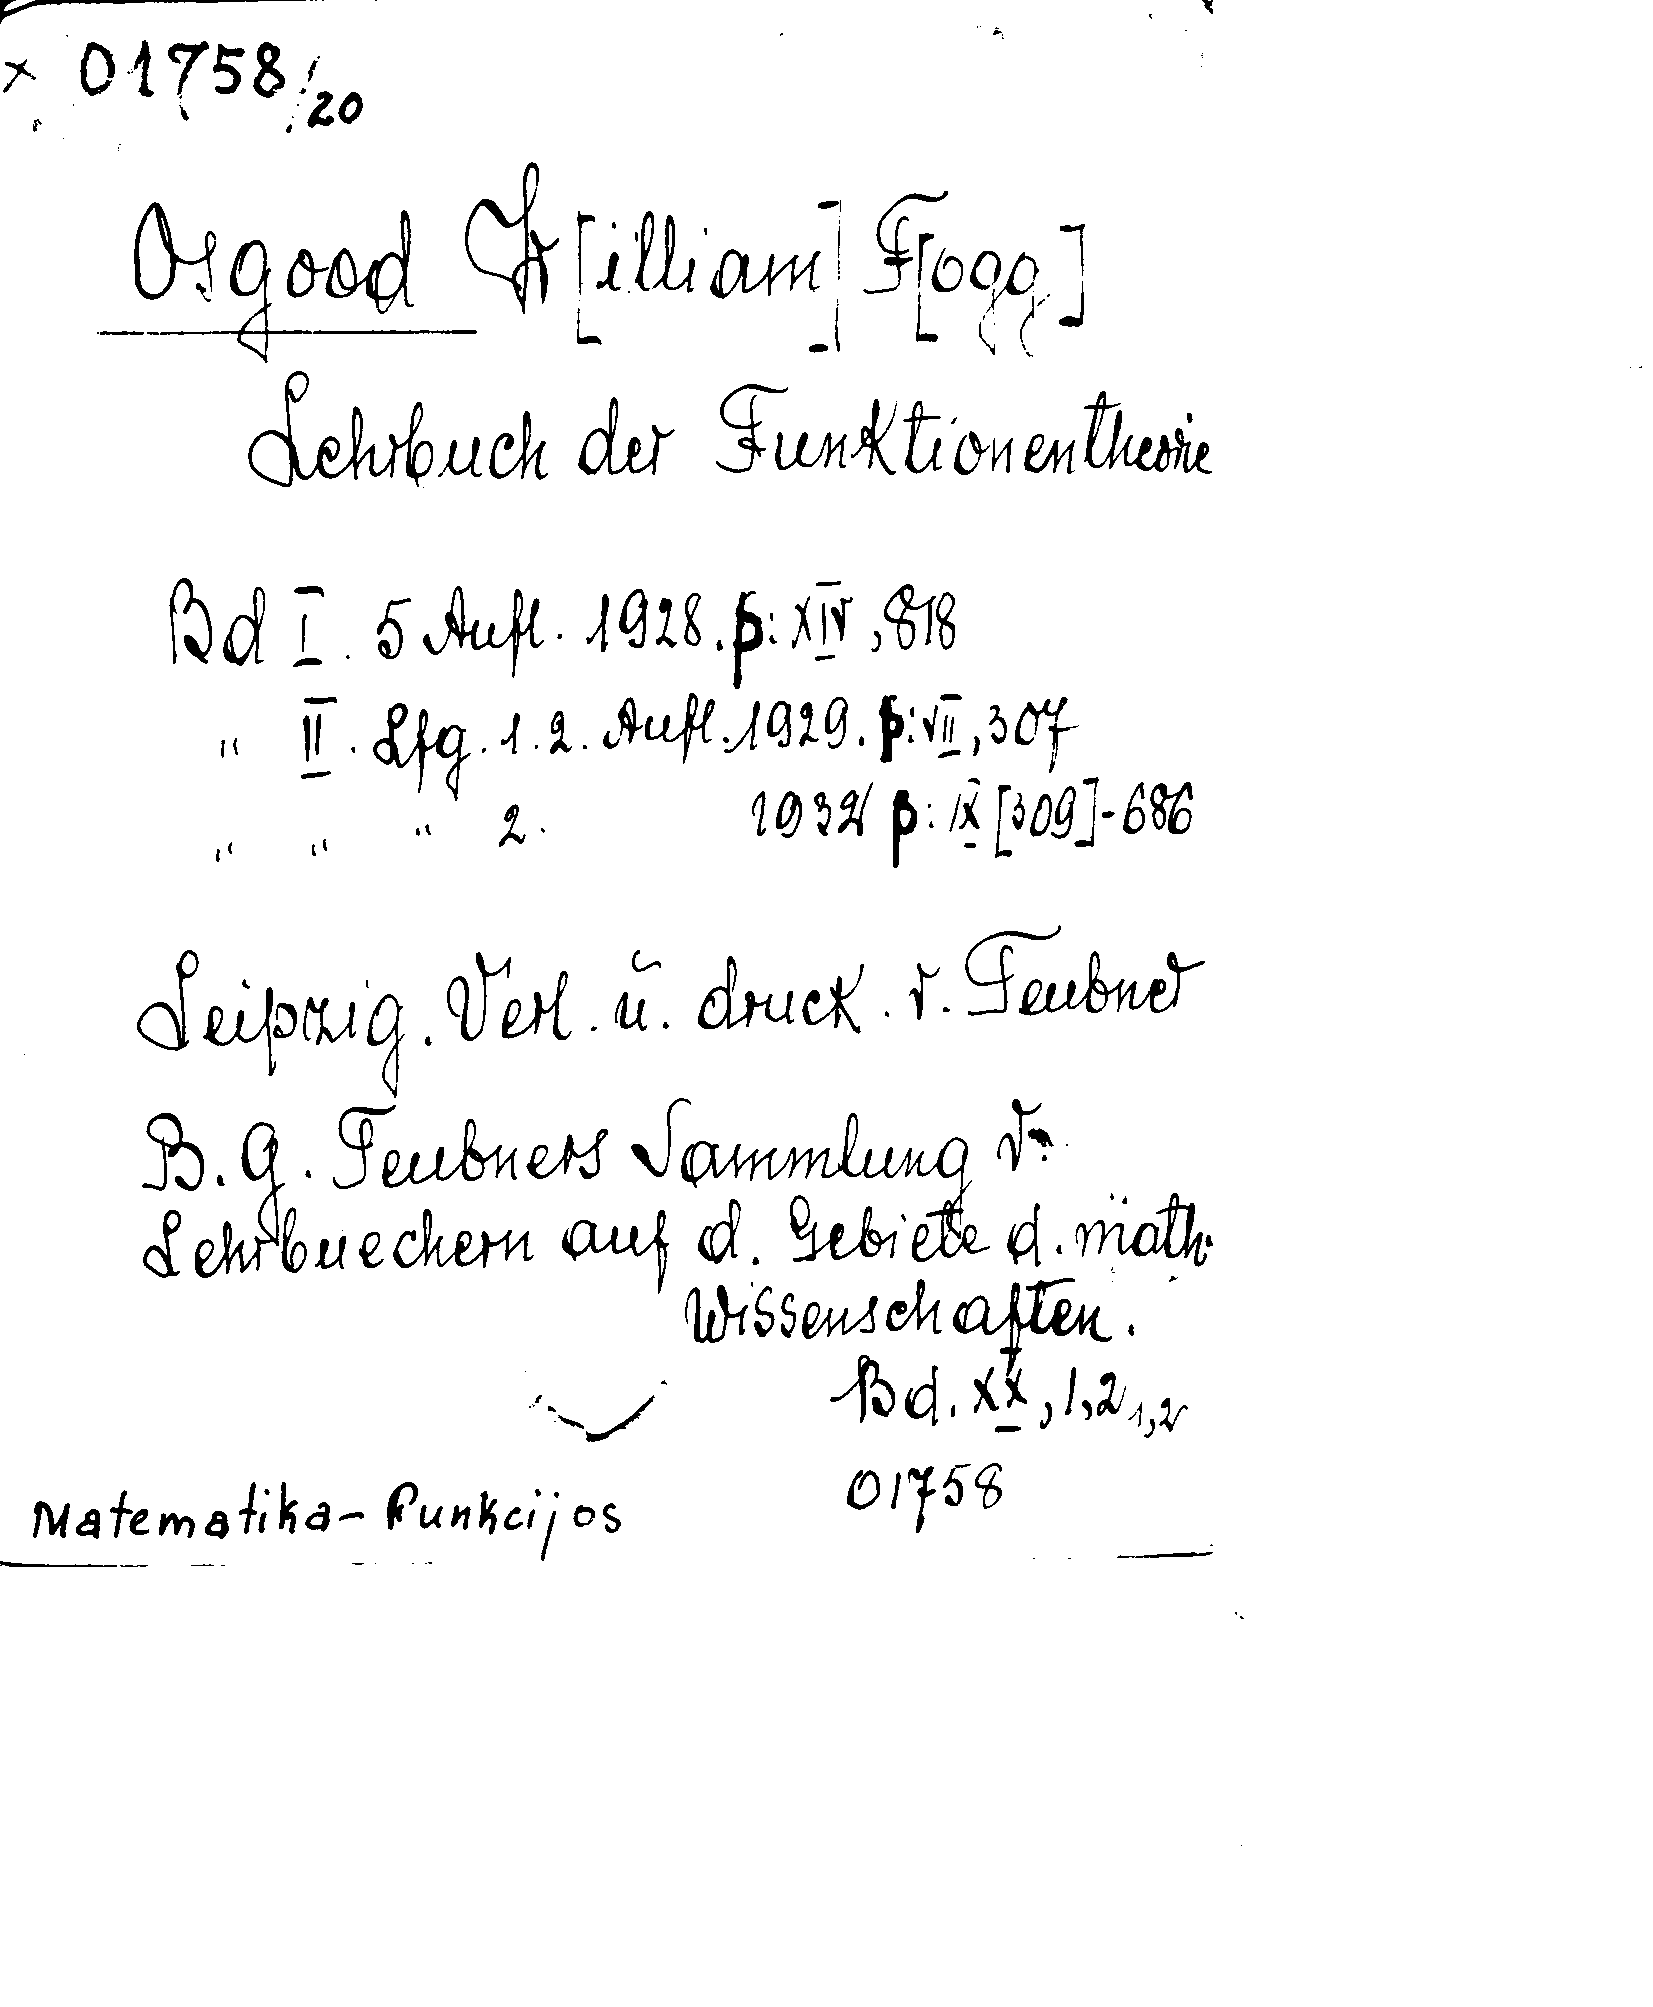 × 01758/20
Osgood W[illiam] F[ogg]
Lehrbuch der Funktionentheorie
Bd I. 5 Aufl. 1928. p: XIV, 818
" II. Lfg. 1. 2. Aufl. 1929. p: VII, 307
" " " 2. 1932 p: IX [309]-686
Leipzig. Verl. u. druck. v. Teubner
B. G. Teubners Sammlung v.
Lehrbuechern auf d. Gebiete d. math.
Wissenschaften.
Bd. XX, 1, 2 1,2
01758
Matematika - Funkcijos